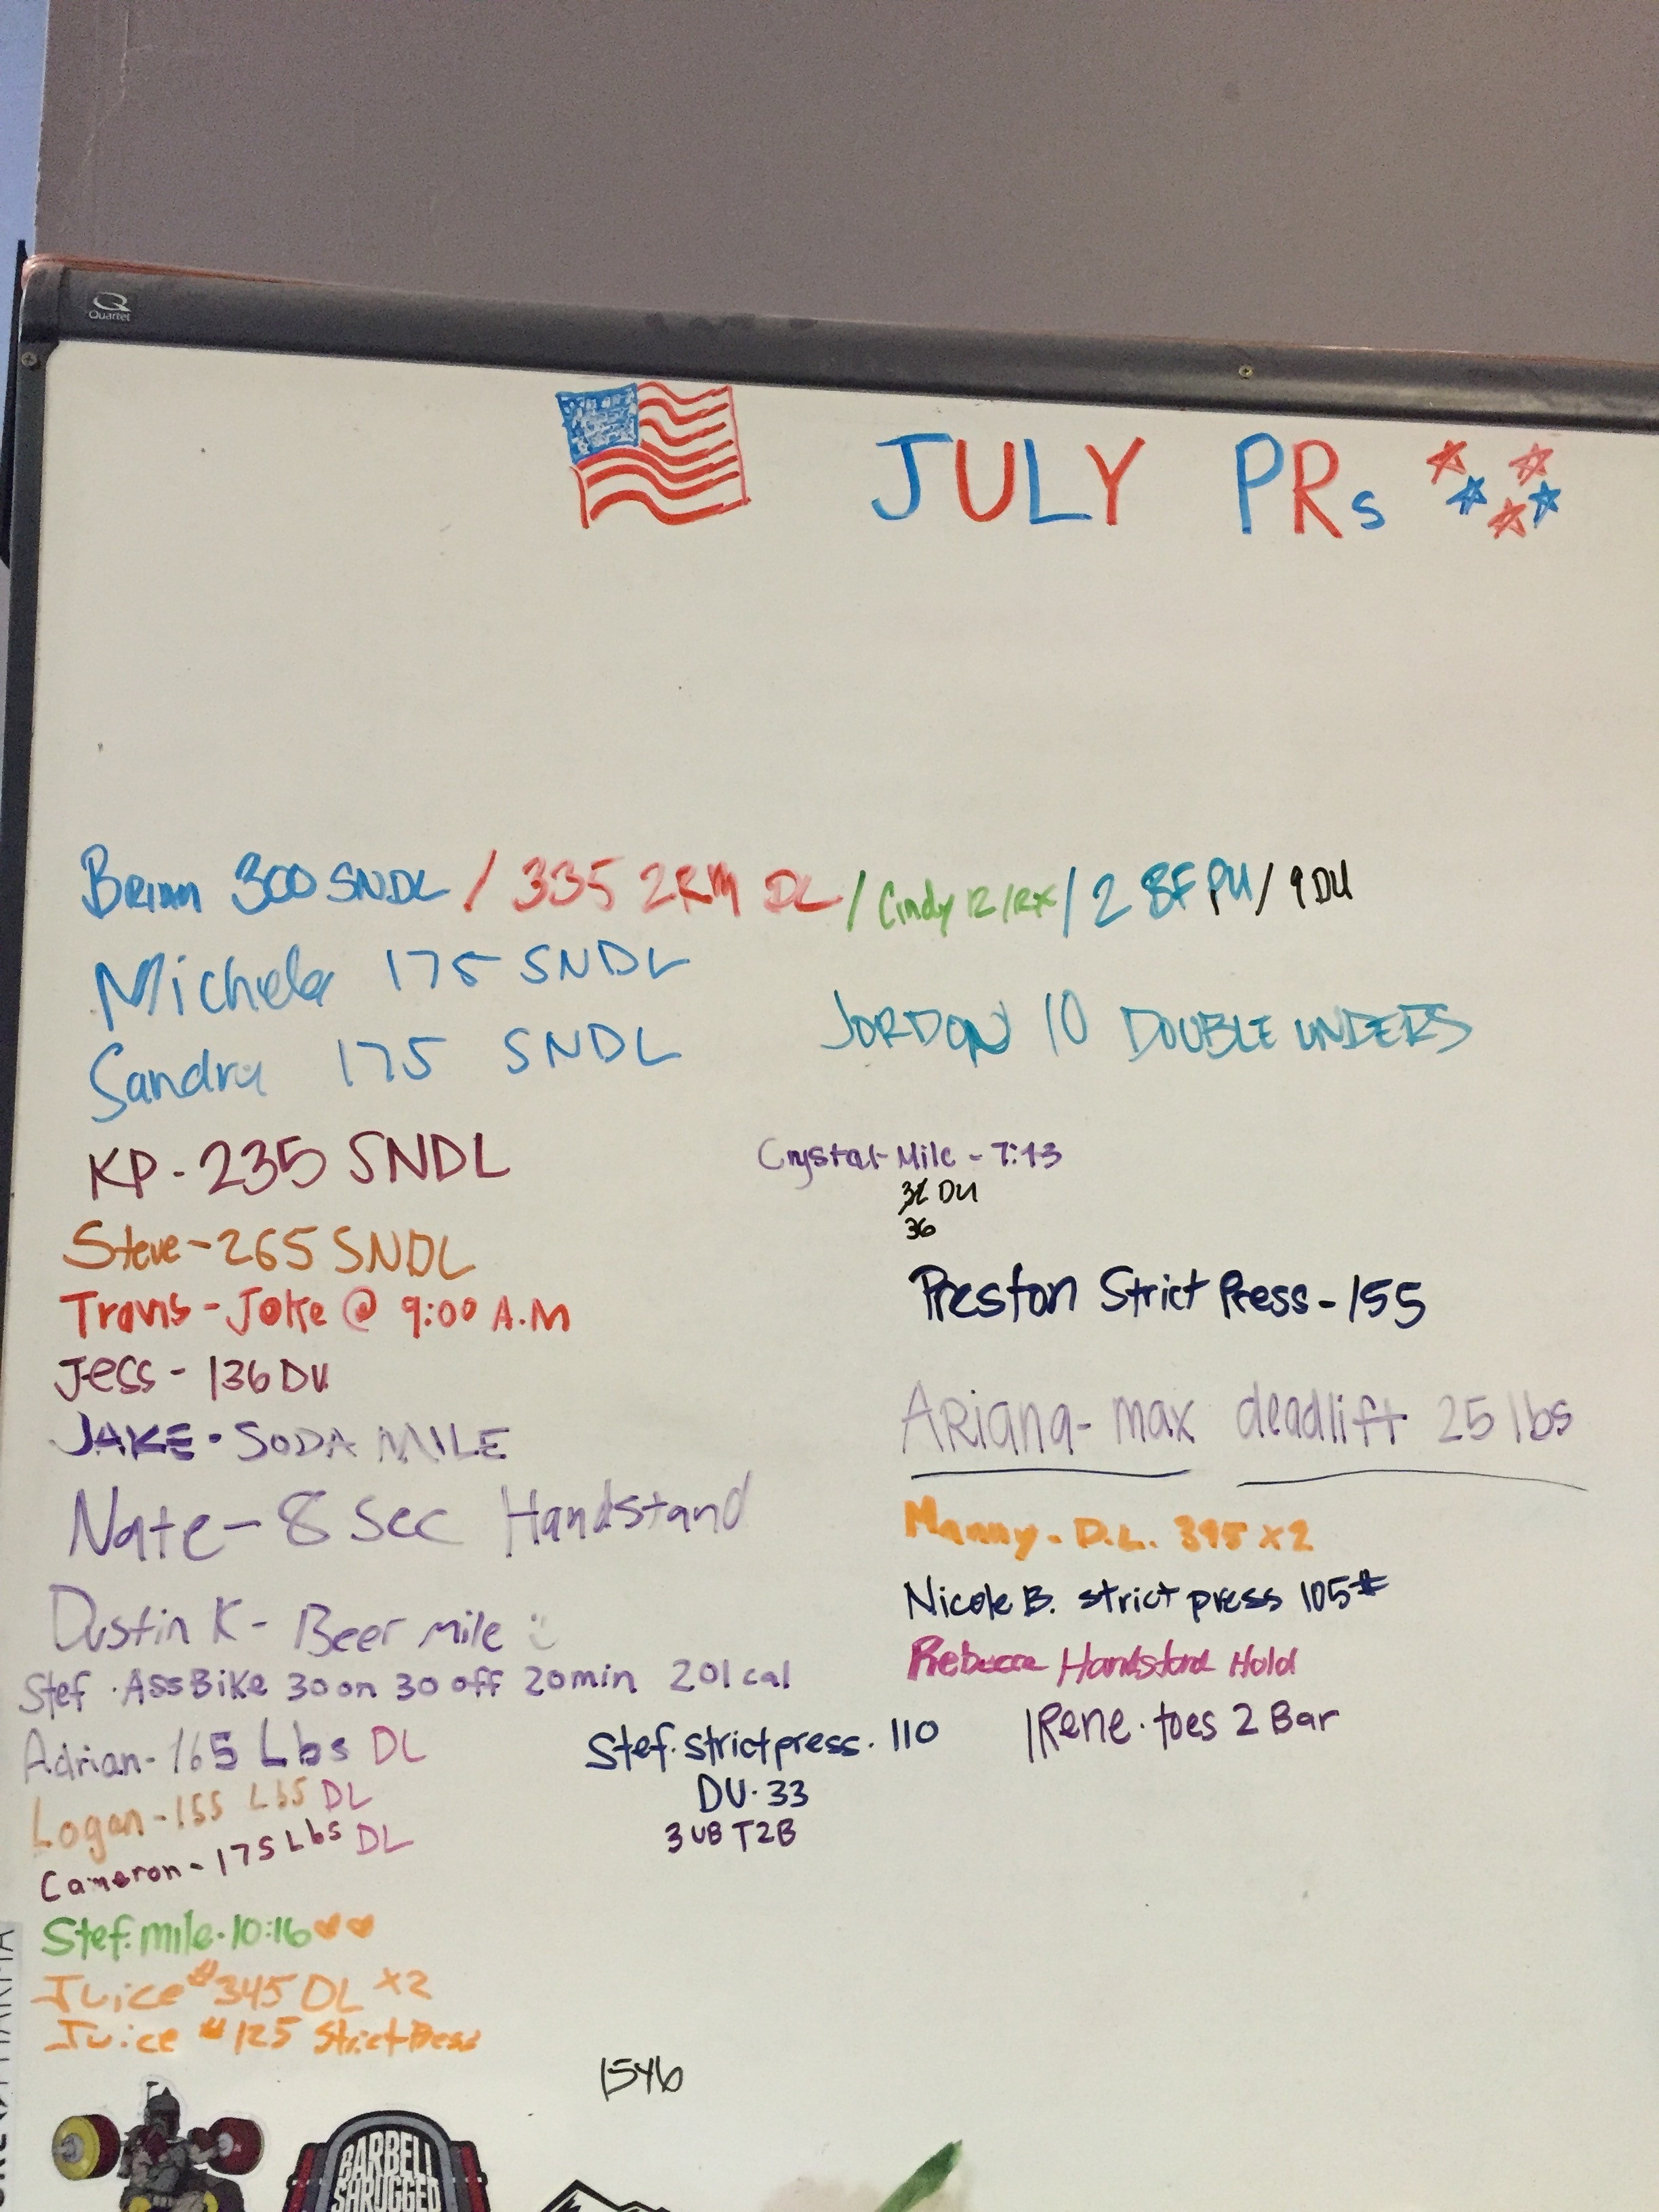 Q
Quartet
JULY PRs
Brian 300 SNDL / 335 2RM DL / Cindy 12/RX / 2 BF PU / 9 DU
Michele 175 SNDL
Sandra 175 SNDL
JORDON 10 DOUBLE UNDERS
KP - 235 SNDL
Crystal Mile - 7:13
DU
36
Steve - 265 SNDL
Travis - Joke @ 9:00 A.M
Preston Strict Press - 155
Jess - 136 DU
JAKE - SODA MILE
ARiana - max deadlift 25 lbs
Nate - 8 sec Handstand
Manny - D.L. 395 x2
Nicole B. strict press 105#
Dustin K - Beer mile
Rebecca Handstand Hold
Stef. AssBike 30 on 30 off 20min 201 cal
IRene. toes 2 Bar
Adrian - 165 Lbs DL
Stef. strict press. 110
DU. 33
3 UB T2B
Logan - 155 Lbs DL
Cameron - 175 Lbs DL
Stef. mile. 10:16
Juice #345 DL x2
Juice #125 Strict Press
1546
BARBELL
SHRUGGED